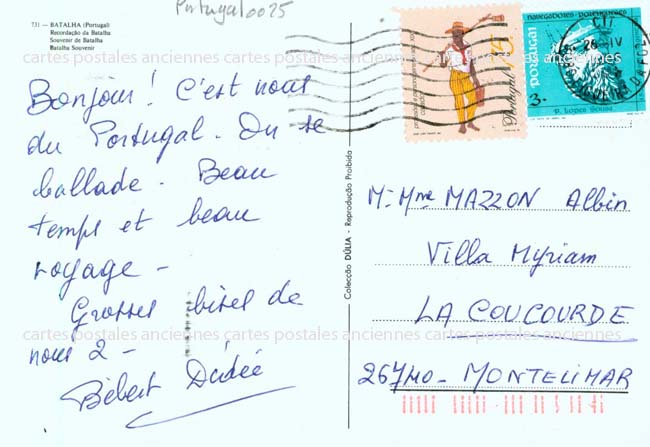 Portugal 0025
731 — BATALHA (Portugal)
Recordação da Batalha
Souvenir de Batalha
Batalha Souvenir
Bonjour! C'est nous
du Portugal. On se
ballade. Beau
temps et beau
voyage -
Grosses bises de
nous 2 -
Bébert Dédée
Colecção DÚLIA - Reprodução Proibida
75
Portugal
NAVEGADORES PORTUGUESES
PORTUGAL
3.-
P. Lopes Sousa
26-IV
M. Mme MAZZON Albin
Villa Myriam
LA COUCOURDE
26740 - MONTELIMAR
cartes postales anciennes cartes postales anciennes cartes postales anciennes
cartes postales anciennes cartes postales anciennes cartes postales anciennes